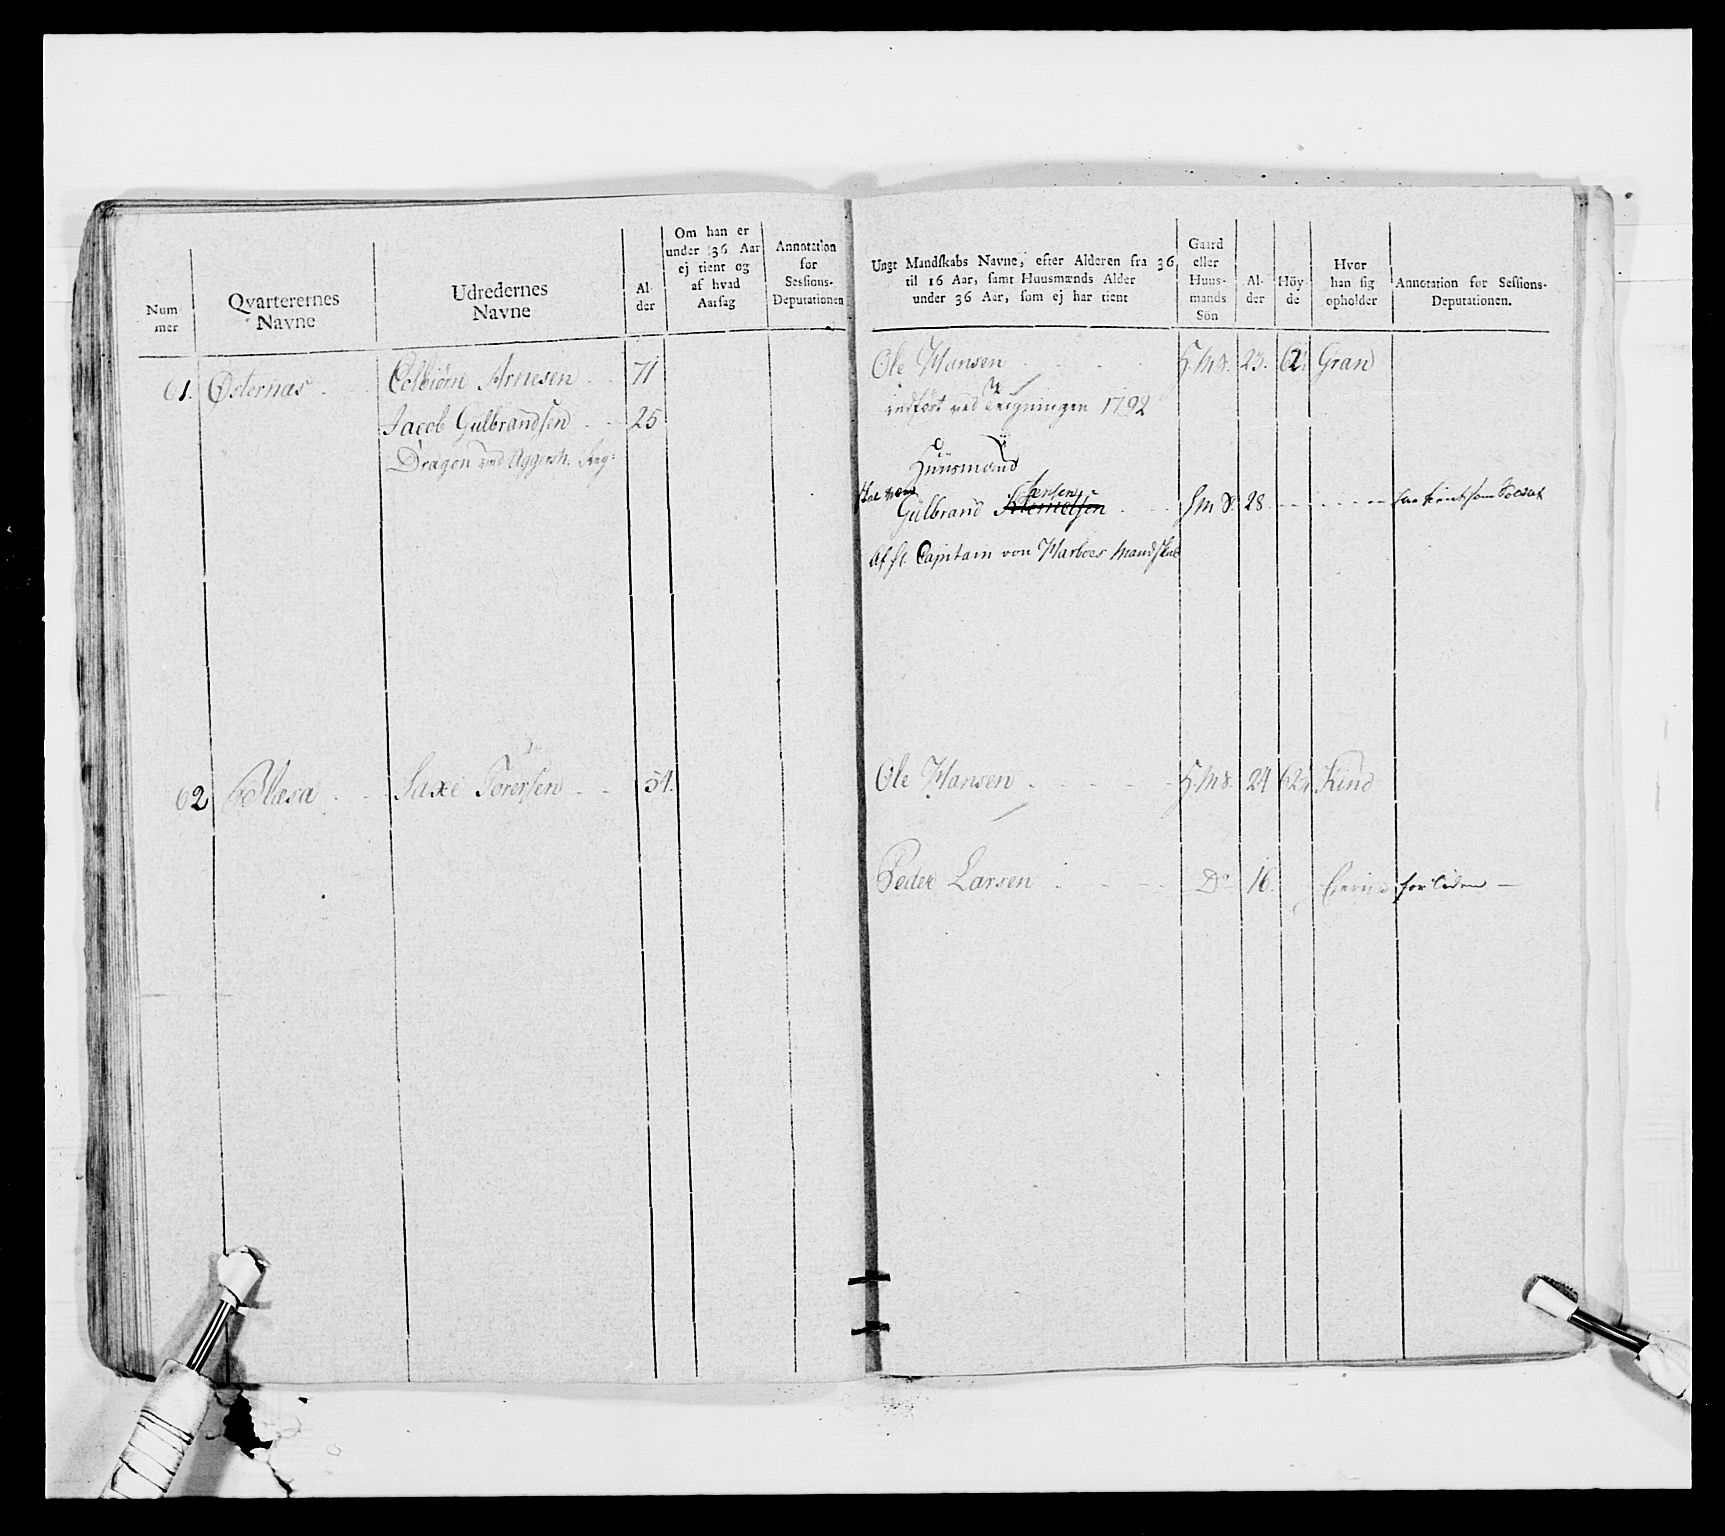 Num
mer
Qvarterernes
Navne
Udredernes
Navne
Al
der
Om han er
under 36 Aar
ej tient og
af hvad
Aarsag
Annotation
for
Sessions-
Deputationen
61. Østernas
Arnesen 71
Jacob Gulbrandsen 25
Dragon ved Aggersh. Reg:
62 Blæsa Saxe Torersen 54.
Ungt Mandskabs Navne, efter Alderen fra 36
til 16 Aar, samt Huusmænds Alder
under 36 Aar, som ej har tient
Gaard
eller
Huus-
mands
Sön
Al-
der
Höy-
de
Hvor
han sig
opholder
Annotation for Sessions-
Deputationen.
Ole Hansen H.M.S. 23. 62 Gran
indført ved 1792
Huusmænd
skal være Jensen
Gulbrand H.M.S. 28 har tient som Soldat
Af H. Capitain von Harboes Mandskab
Ole Hansen H.M.S. 24 62 Kind
Peder Larsen Do 16. for liden